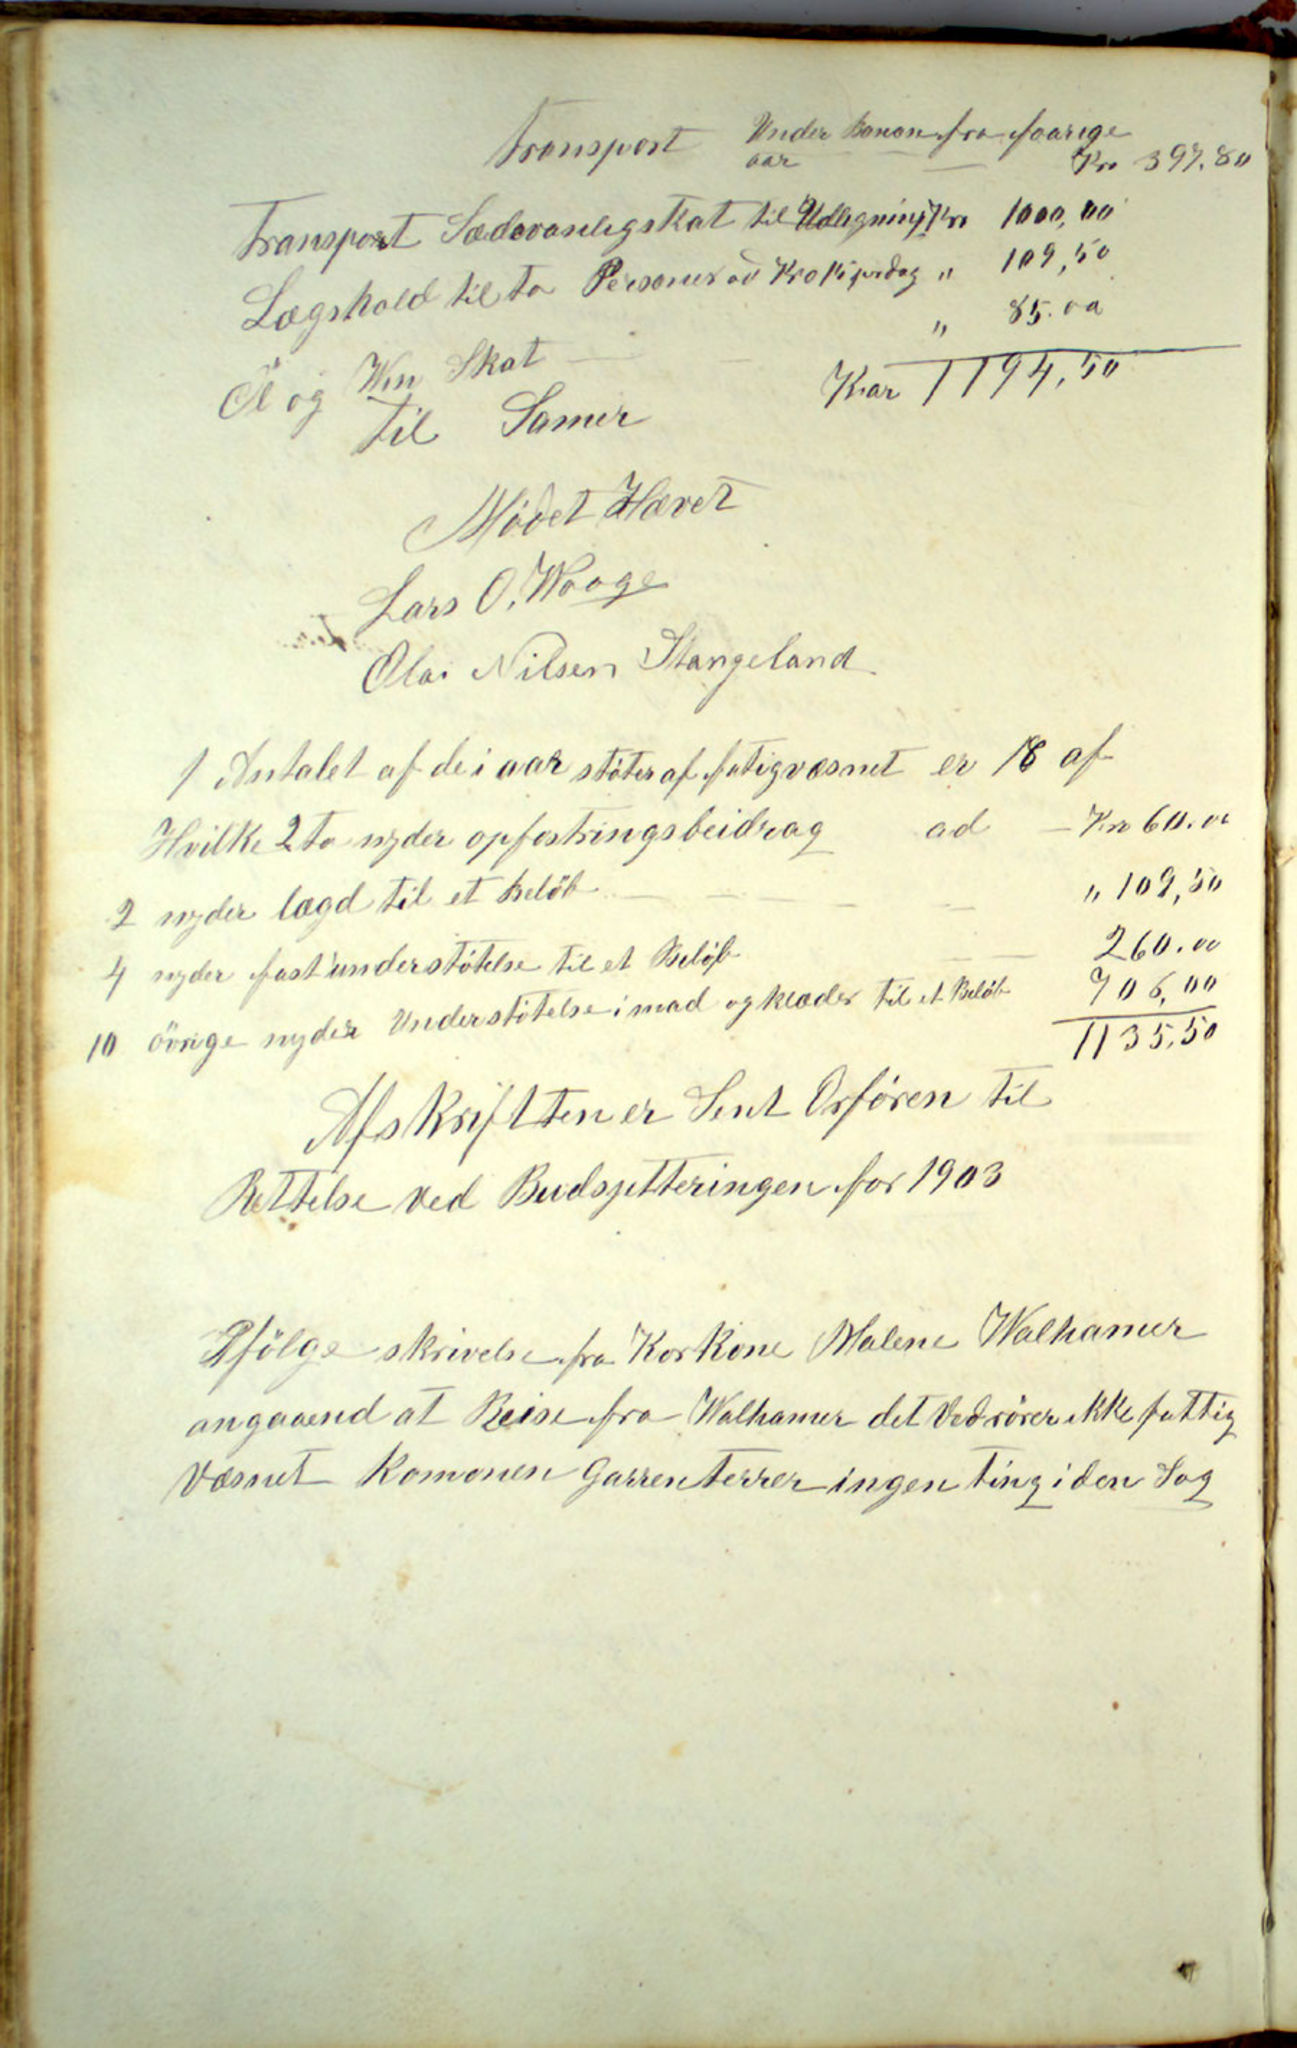 Transport Under Banansfra foarige
aar — Kro 397.80
Transport Sædevanligskat til Udligning Kro 1000,00
Lægshold til to Personer ad Kro 15 prdag " 109,50
Öl og Win Skat — — " 85.00
til Samer Kar 1194,50
Mödet Hævet
Lars O. Waage
Ola Nilsen Stangeland
1 Antalet af de i aar stöter af fatigvæsnet er 18 af
Hvilke 2 to nyder opfostringsbeidrag ad — Kro 60.00
2 nyder lægd til et Belöb — — — — " 109,50
4 nyder fast understötelse til et Belöb — 260.00
10 övrige nyder Understötelse i mad og klæder til et Belöb 706,00
1135,50
Afskriften er Sent Orfören til
Rettelse ved Budsjetteringen for 1903
Ifölge skrivelse fra Korkone Malene Walhamer
angaaend at Reise fra Walhamer det Vedrörer ikke fattig
Væsnet Komonen Garrenterrer ingen ting i den Sag